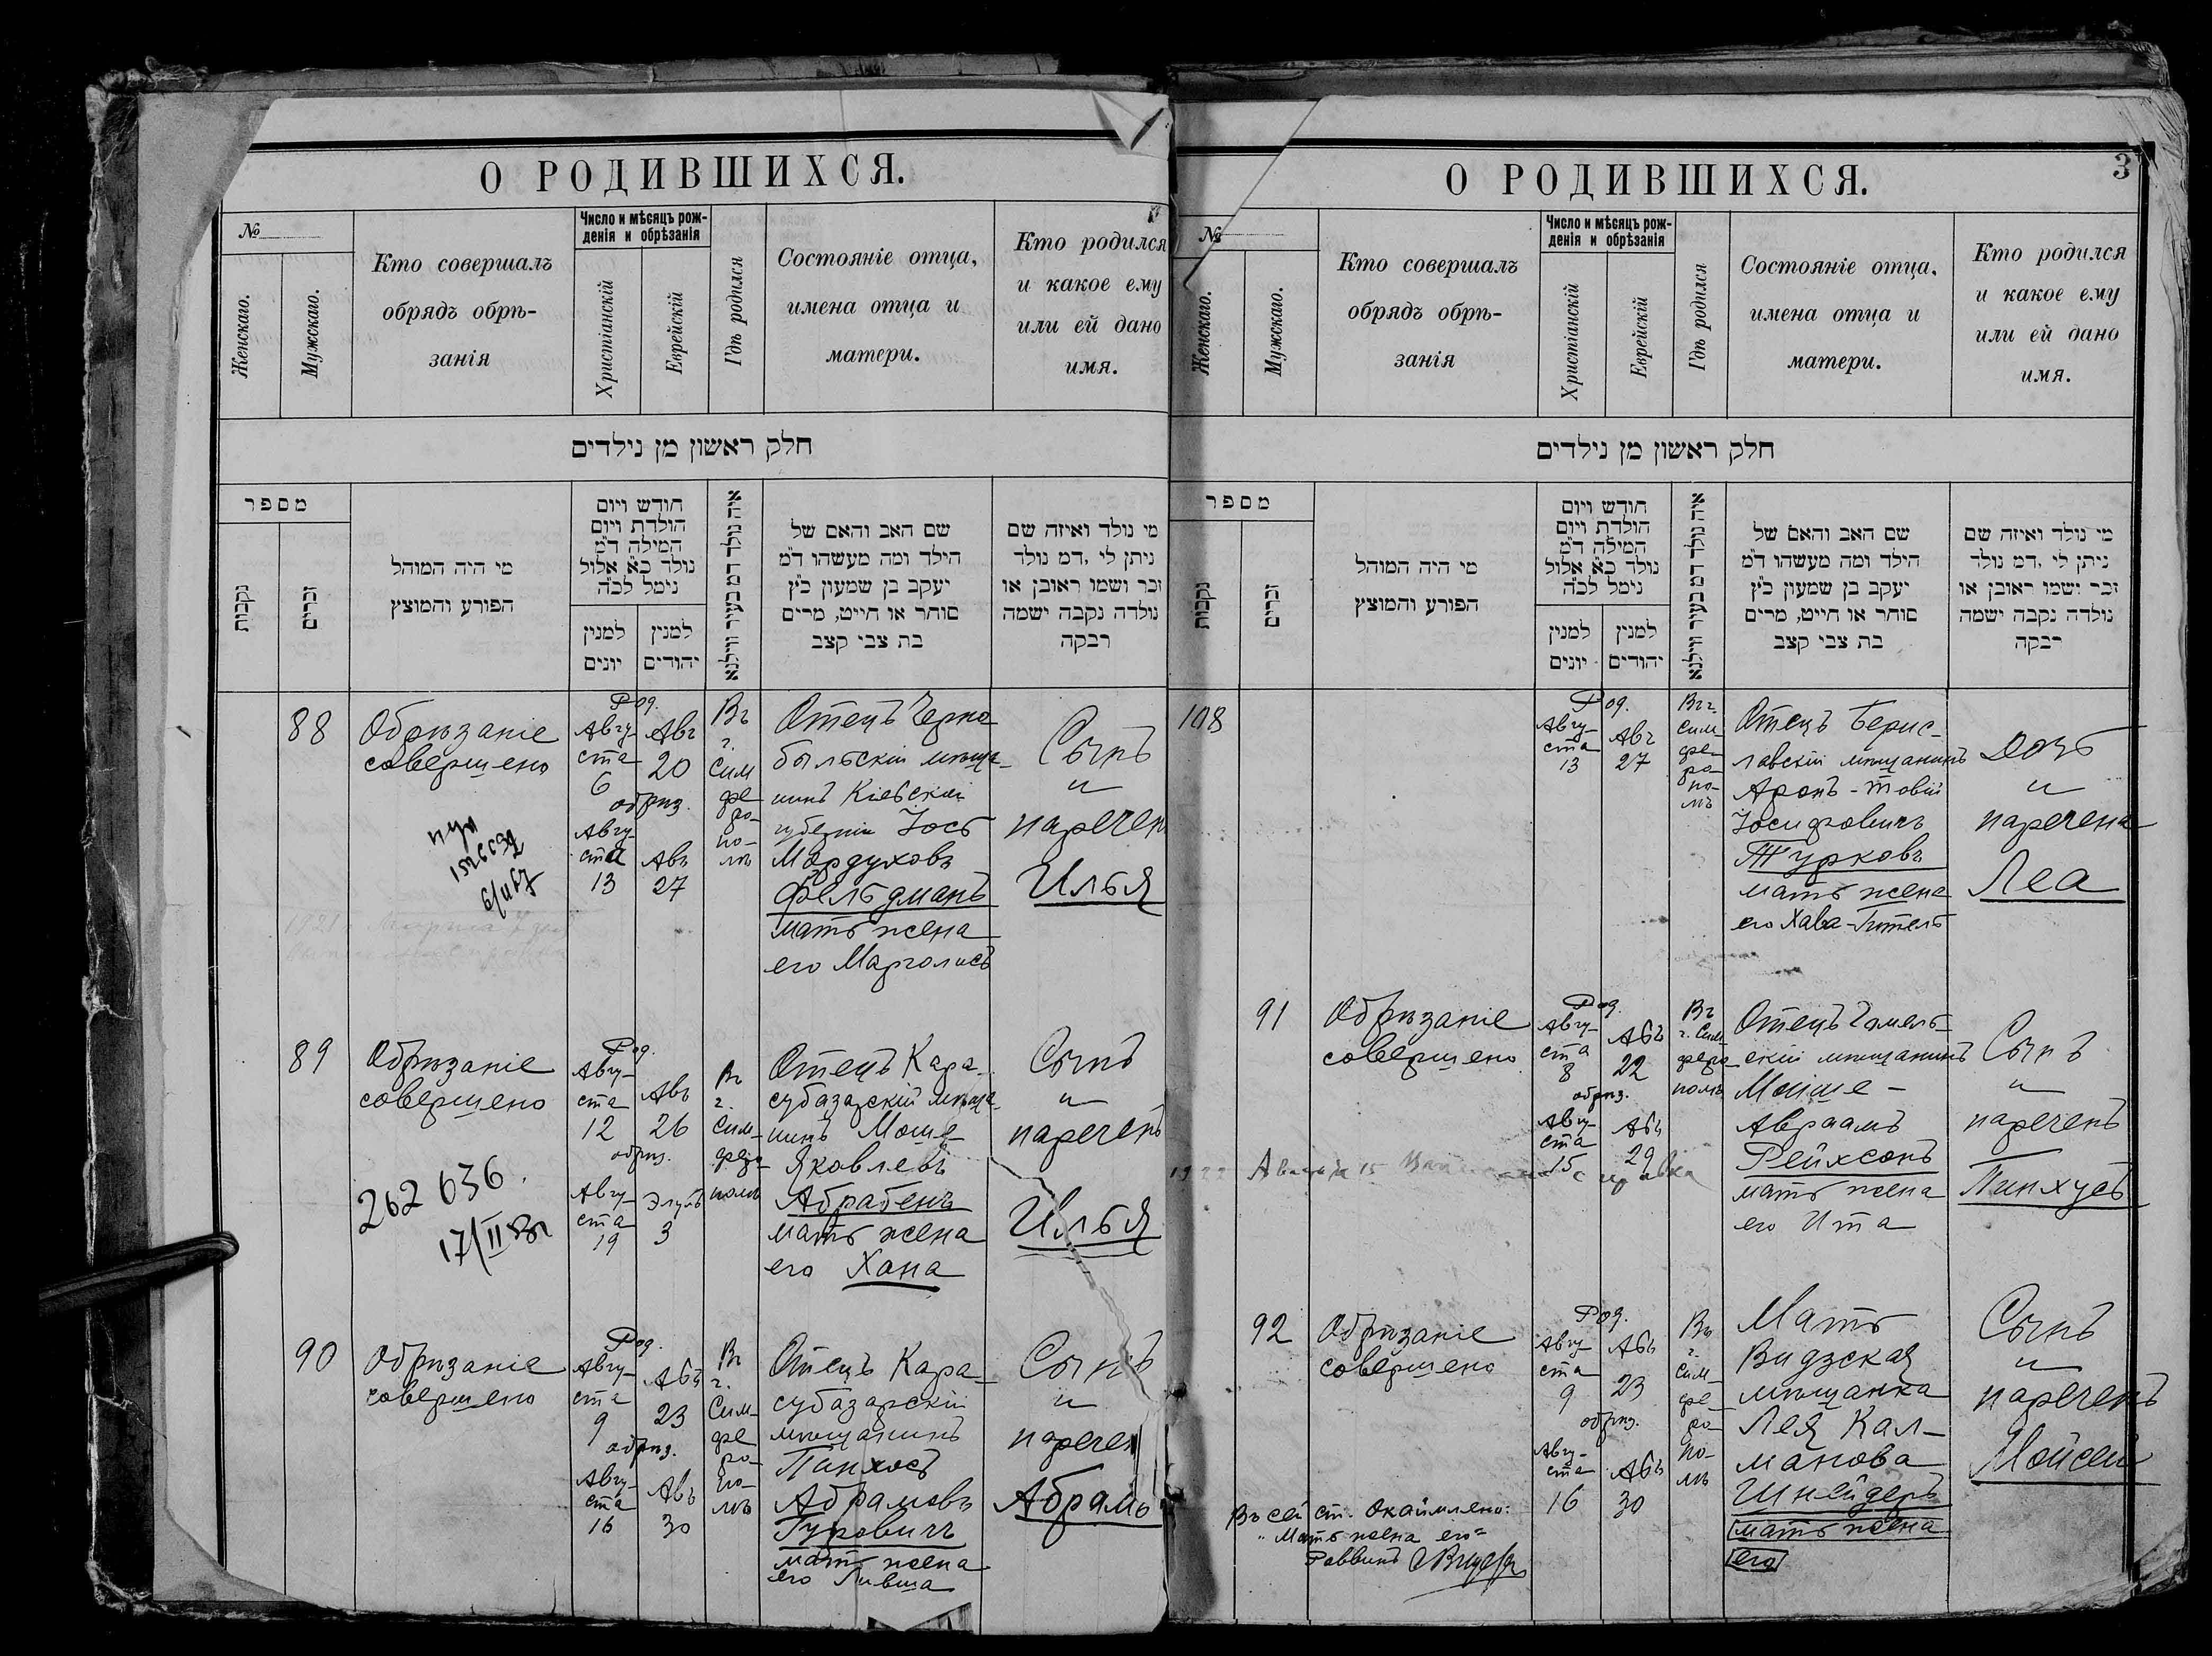 О РОДИВШИХСЯ.
№
Женскаго.
Мужскаго.
Кто совершалъ
обрядъ обрѣ-
занія
Число и мѣсяцъ рож-
денія и обрѣзанія
Христіанскій
Еврейскій
Гдѣ родился
Состояніе отца,
имена отца и
матери.
Кто родился
и какое ему
или ей дано
имя.
חלק ראשון מן נילדים
מספר
נקבות
זכרים
מי היה המוהל
הפורע והמוצץ
חודש ויום
הולדת ויום
המילה ד״מ
נולד כ״א אלול
נימל לכ״ה
למנין
יונים
למנין
יהודים
איה נולד דמ בעיר ווילנא
שם האב והאם של
הילד ומה מעשהו ד״מ
יעקב בן שמעון כ״ץ
סוחר או חייט, מרים
בת צבי קצב
מי נולד ואיזה שם
ניתן לי, דמ נולד
זכר ושמו ראובן או
נולדה נקבה ישמה
רבקה
88
Обрѣзаніе
совершено
Род.
Авгу-
ста
6
Авъ
20
обрѣз.
Авгу-
ста
13
Авъ
27
Въ
г.
Сим
фе-
ро-
по-
лѣ
Отецъ Черно
быльскій мѣща-
нинъ Кіевской
губерніи Іось
Мордуховъ
Фельдманъ
мать жена
его Марголисъ
Сынъ
и
наречен
Илья
89
Обрѣзаніе
совершено
262 636.
Род.
Авгу-
ста
12
Авъ
26
обрѣз.
Авгу-
ста
19
Элулъ
3
Въ
г.
Сим-
феро-
полѣ
Отецъ Кара-
субазарскій мѣща-
нинъ Моше-
Яковлевъ
Абрабенъ
мать жена
его Хана
Сынъ
и
нареченъ
Илья
90
Обрѣзаніе
совершено
Род.
Авгу-
ста
9
Авъ
23
обрѣз.
Авгу-
ста
16
Авъ
30
Въ
г.
Сим-
фе
ро-
по-
лѣ
Отецъ Кара-
субазарскій
мѣщанинъ
Пинхосъ
Абрамовъ
Гуровичъ
мать жена
его Ливша
Сынъ
и
наречен
Абрамъ
О РОДИВШИХСЯ.
3
№
Женскаго.
Мужскаго.
Кто совершалъ
обрядъ обрѣ-
занія
Число и мѣсяцъ рож-
денія и обрѣзанія
Христіанскій
Еврейскій
Гдѣ родился
Состояніе отца,
имена отца и
матери.
Кто родился
и какое ему
или ей дано
имя.
חלק ראשון מן נילדים
מספר
נקבות
זכרים
מי היה המוהל
הפורע והמוצץ
חודש ויום
הולדת ויום
המילה ד״מ
נולד כ״א אלול
נימל לכ״ה
למנין
יונים
למנין
יהודים
איה נולד דמ בעיר ווילנא
שם האב והאם של
הילד ומה מעשהו ד״מ
יעקב בן שמעון כ״ץ
סוחר או חייט, מרים
בת צבי קצב
מי נולד ואיזה שם
ניתן לי, דמ נולד
זכר ושמו ראובן או
נולדה נקבה ישמה
רבקה
108
Род.
Авгу-
ста
13
Авъ
27
Въ г.
Сим
фе-
ро-
по-
лѣ
Отецъ Берис-
лавскій мѣщанинъ
Аронъ-Товій
Іосифовичъ
Турковъ
мать жена
его Хава-Гитель
Дочь
и
наречена
Леа
91
Обрѣзаніе
совершено
Род.
Авгу-
ста
8
Авъ
22
обрѣз.
Авгу-
ста
15
Авъ
29
Въ
г. Сим-
феро-
полѣ
Отецъ Гомель-
скій мѣщанинъ
Мойше-
Авраамъ
Рейхсонъ
мать жена
его Ита
Сынъ
и
нареченъ
Пинхусъ
92
Обрѣзаніе
совершено
Род.
Авгу-
ста
9
Авъ
23
обрѣз.
Авгу-
ста
16
Авъ
30
Въ
г.
Сим-
фе-
ро-
по-
лѣ
Мать
Видзская
мѣщанка
Лея Кал-
манова
Шнейдеръ
мать жена
его
Сынъ
и
нареченъ
Мойсей
Въ сей ст. окаймлено:
"Мать жена его"
Раввинъ